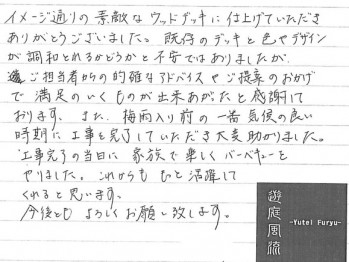 イメージ通りの素敵なウッドデッキに仕上げていただき
ありがとうございました。既存のデッキと色やデザイン
が調和とれるかどうかと不安ではありましたが、
ご担当者からの的確なアドバイスやご提案のおかげ
で満足のいくものが出来あがったと感謝して
おります。また、梅雨入り前の一番気候の良い
時期に工事を完了していただき大変助かりました。
工事完了の当日に家族で楽しくバーベキューを
やりました。これからももっと活躍して
くれると思います。
今後ともよろしくお願い致します。
遊庭風流
-Yutei Furyu-